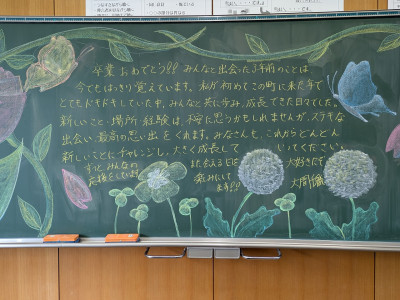 卒業おめでとう!! みんなと出会った3年前のことは
今でもはっきり覚えています。私が初めてこの町に来た年で
とてもドキドキしていた中、みんなと共に歩み、成長できた日々でした。
新しいこと・場所・経験は、怖いと思うかもしれませんが、ステキな
出会い、最高の思い出をくれます。みなさんも、これからどんどん
新しいことにチャレンジし、大きく成長していってください。
ずっとみんなの
応援をしています
また会える日を
楽しみにして
ます!!
大好きです